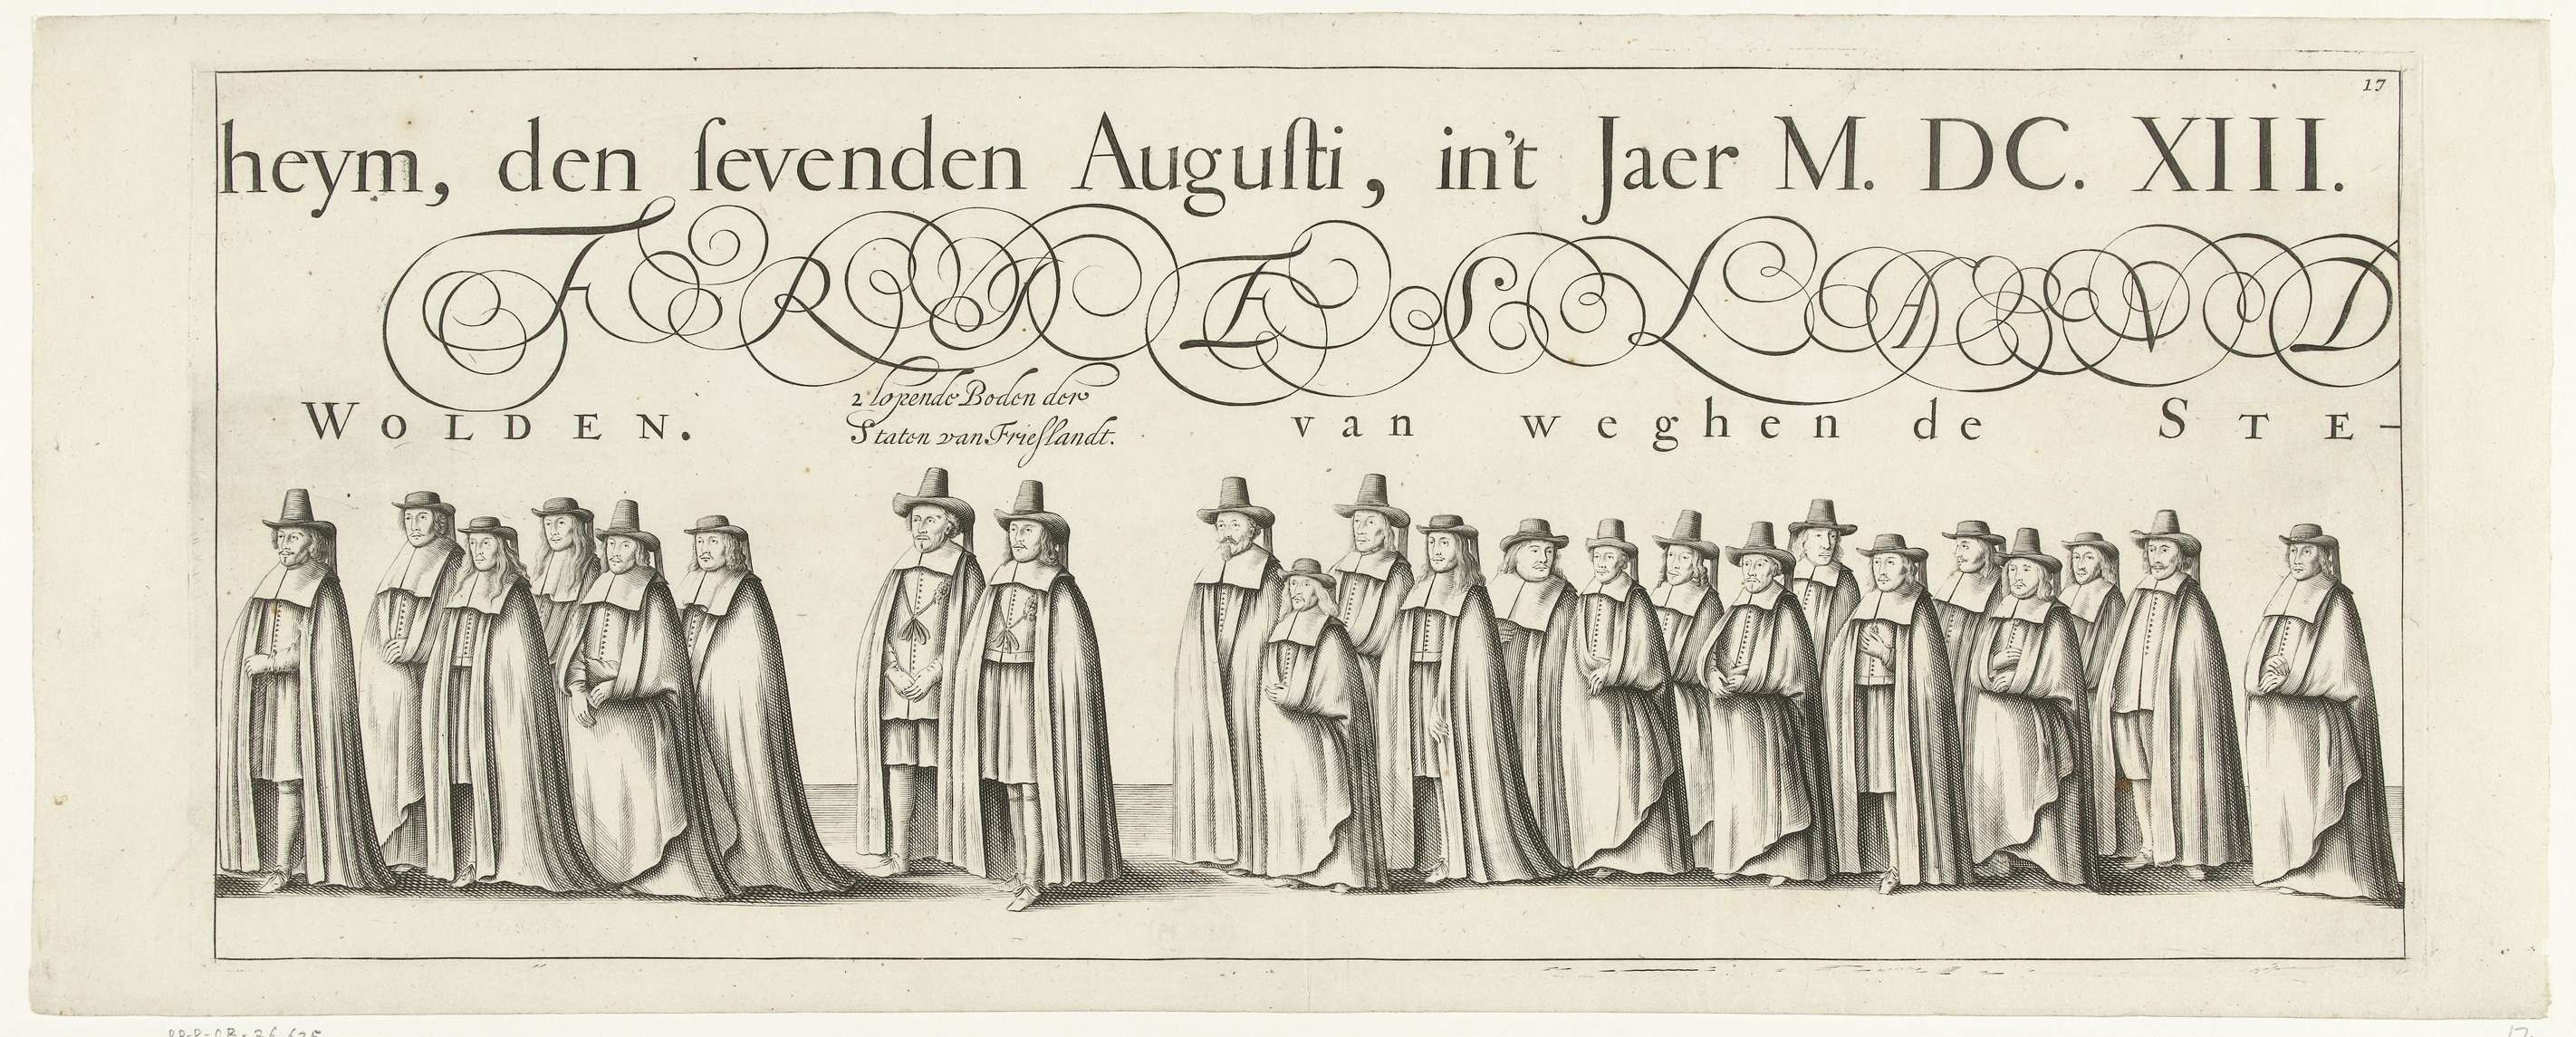 17
heym, den ſevenden Auguſti, in't Jaer M. DC. XIII.
FRIESLAND
WOLDEN.
2 lopende Boden der
Staten van Frieſlandt.
van weghen de STE-
RP-P-OB-76.625
17.